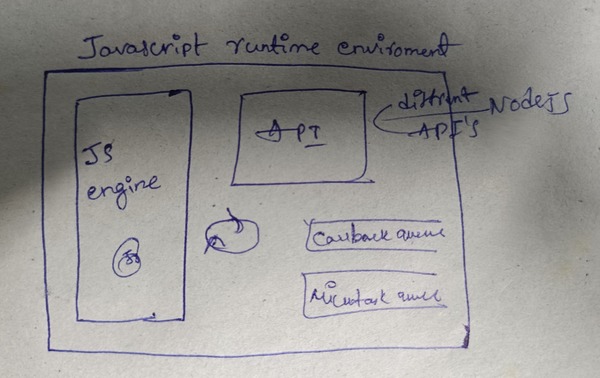 Javascript runtime enviroment
JS
engine
JS
API
diffrent
API'S
NodeJS
Callback queue
Microtask queue